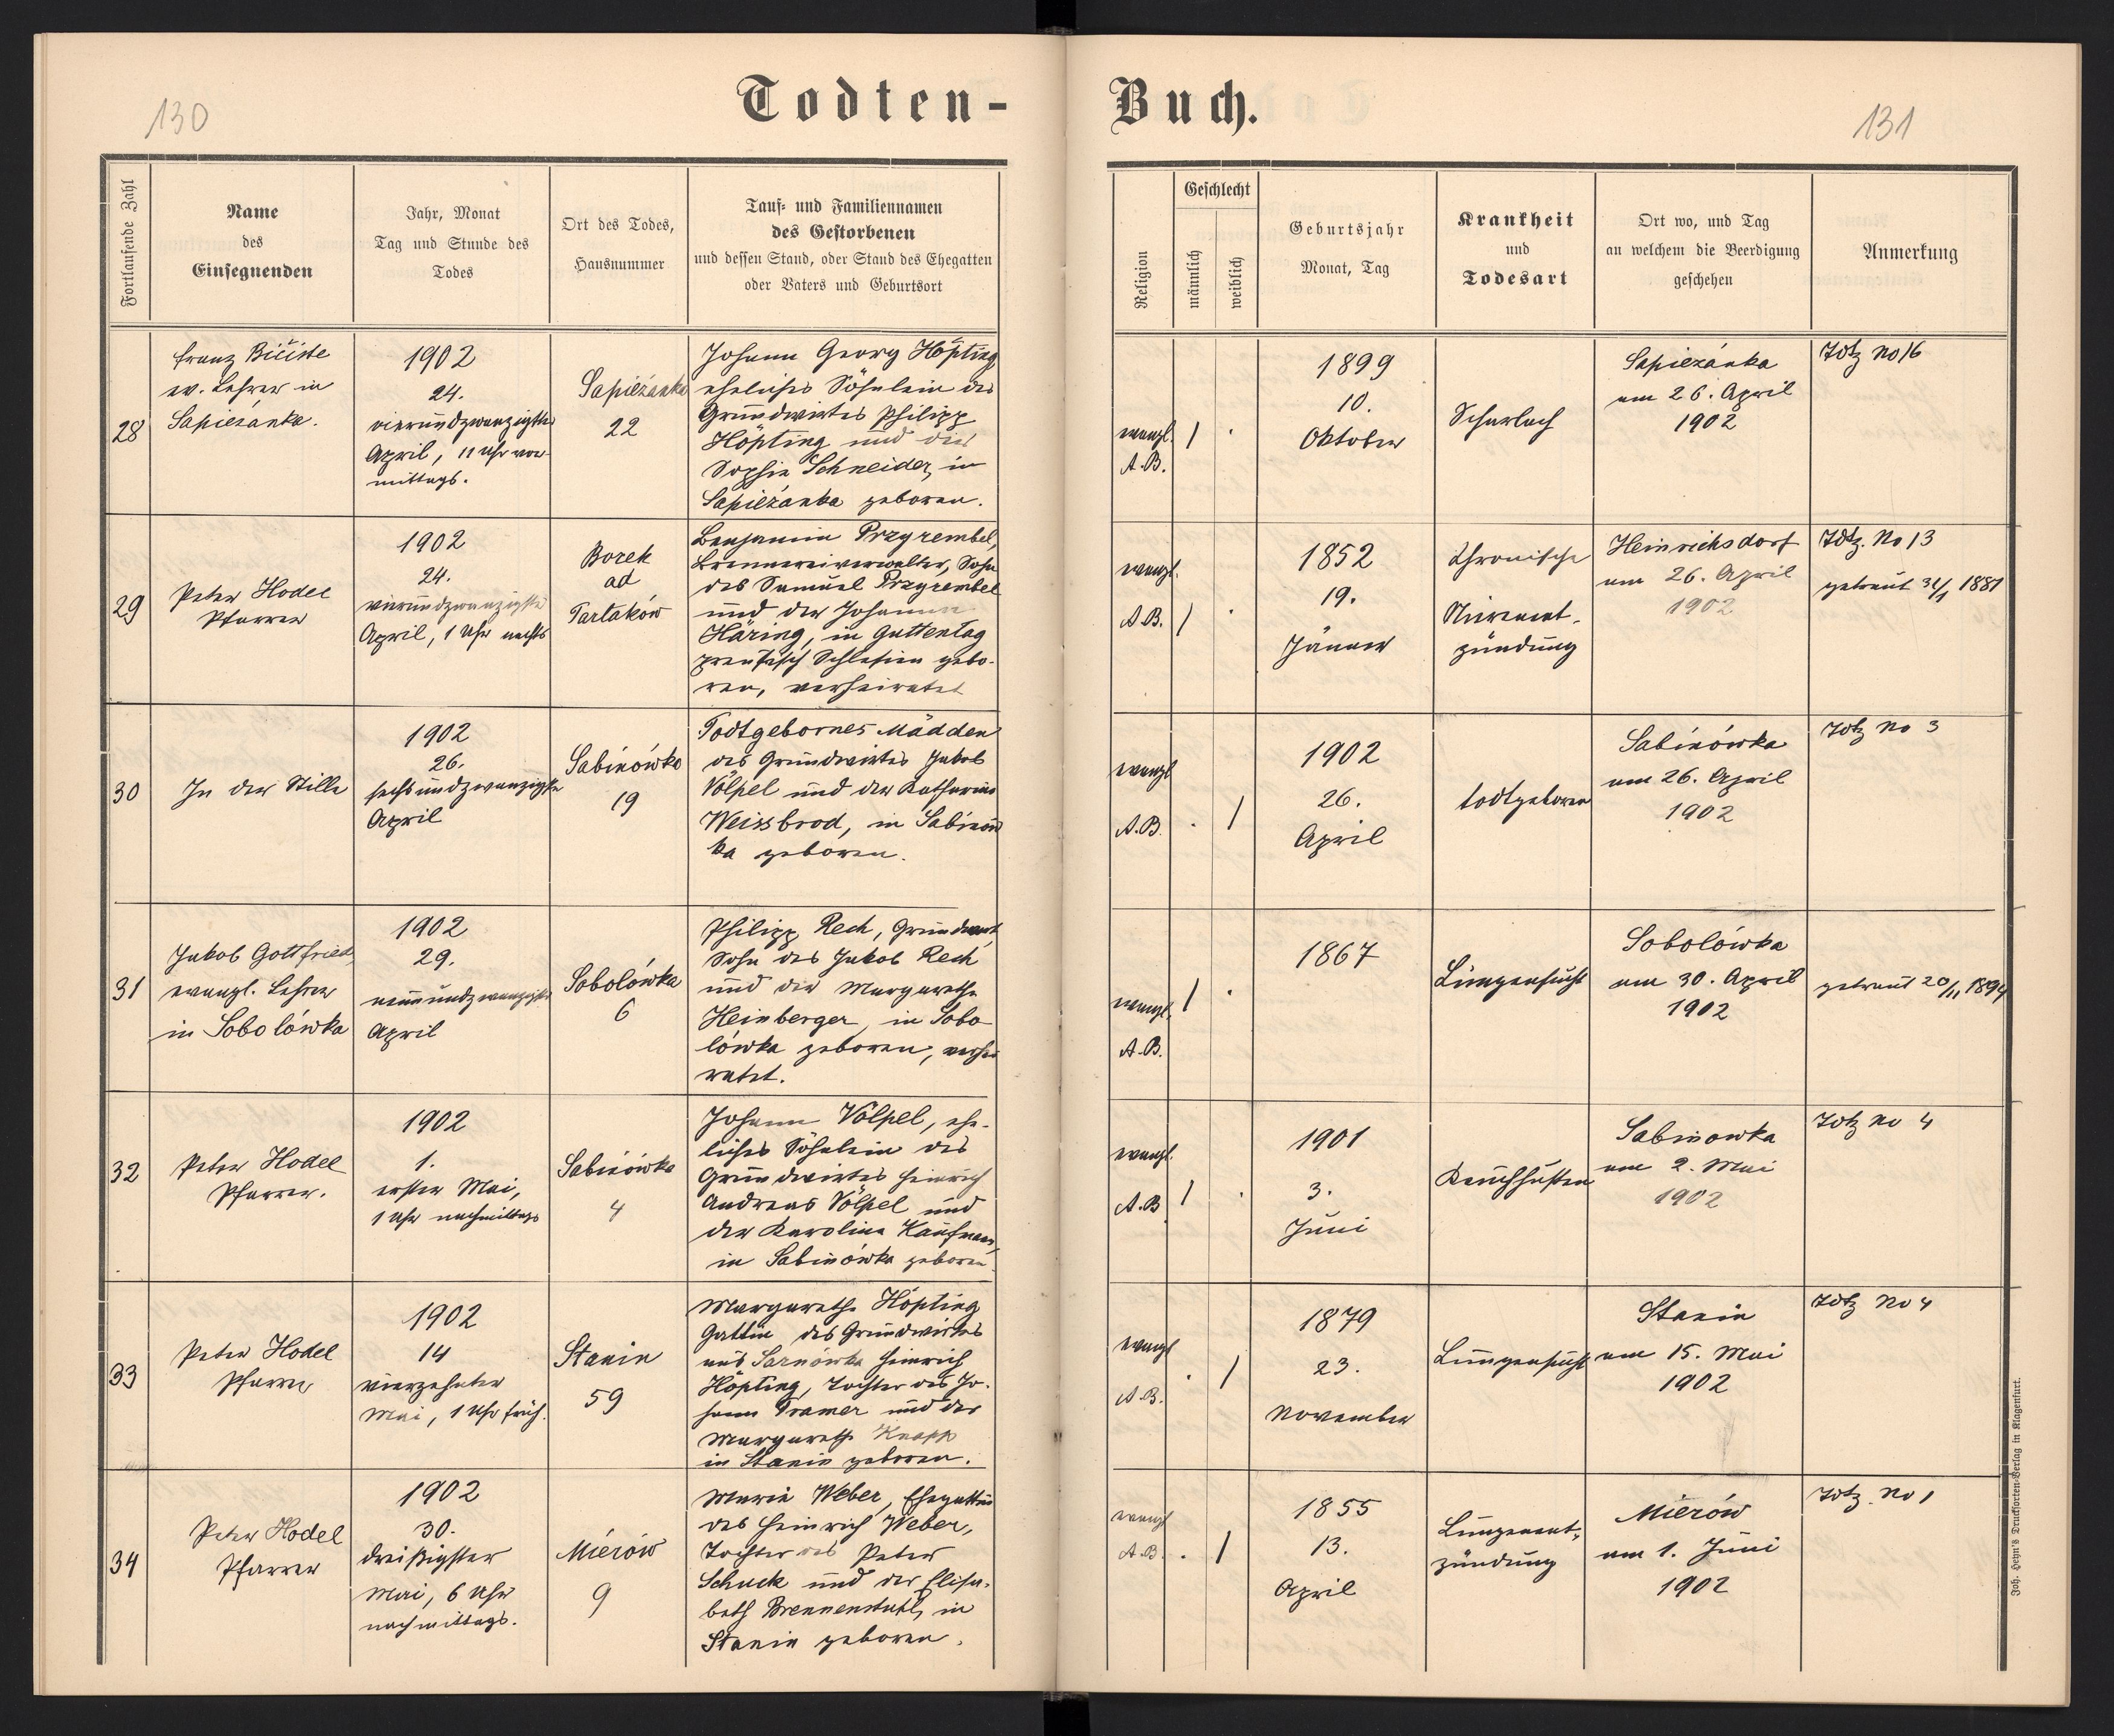 130
Todten-
Fortlaufende Zahl
Name
des
Einsegnenden
Jahr, Monat
Tag und Stunde des
Todes
Ort des Todes,
Hausnummer
Tauf- und Familiennamen
des Gestorbenen
und dessen Stand, oder Stand des Ehegatten
oder Vaters und Geburtsort
28
Franz
ev. Lehrer in
Sapieżanka.
1902
24.
vierundzwanzigster
April, 11 Uhr vor-
mittags.
Sapieżanka
22
Johann Georg Höpfing
eheliches Söhnlein des
Grundwirtes Philipp
Höpfing und der
Sophie Schneider, in
Sapieżanka geboren.
29
Peter Hodel
Pfarrer
1902
24.
vierundzwanzigster
April, 1 Uhr nachts
Borek
ad
Tartaków
Benjamin Przyrembel,
Brennereiverwalter, Sohn
des Samuel Przyrembel
und der Johanna
Häring, in Guttentag
preußisch Schlesien gebo-
ren, verheiratet
30
In der Stille
1902
26.
sechsundzwanzigster
April
Sabinówka
19
Todtgebornes Mädchen
des Grundwirtes Jakob
Völpel und der Katharina
Weissbrod, in Sabinów
ka geboren.
31
Jakob Gottfried,
evangl. Lehrer
in Sobolówka
1902
29.
neunundzwanzigster
April
Sobolówka
6
Philipp Rech, Grundwirt
Sohn des Jakob Rech
und der Margarethe
Heinberger, in Sobo
lówka geboren, verhei
ratet.
32
Peter Hodel
Pfarrer.
1902
1.
erster Mai,
1 Uhr nachmittags
Sabinówka
4
Johann Völpel, ehe-
liches Söhnlein des
Grundwirtes Heinrich
Andreas Völpel und
der Karolina Kaufmann,
in Sabinówka geboren
33
Peter Hodel
Pfarrer
1902
14
vierzehnter
Mai, 1 Uhr früh.
Stanin
59
Margarethe Höpfing
Gattin des Grundwirtes
aus Sarnówka Heinrich
Höpfing, Tochter des Jo-
hann Kramer und der
Margarethe Knapp
in Stanin geboren.
34
Peter Hodel
Pfarrer
1902
30.
dreißigster
Mai, 6 Uhr
nachmittags.
Mierów
9
Maria Weber, Ehegattin
des Heinrich Weber,
Tochter des Peter
Schuck und der Elisa-
beth Brennenstuhl, in
Stanin geboren.
Buch.
131
Religion
Geschlecht
männlich
weiblich
Geburtsjahr
Monat, Tag
Krankheit
und
Todesart
Ort wo, und Tag
an welchem die Beerdigung
geschehen
Anmerkung
evangl.
A.B.
1
.
1899
10.
Oktober
Scharlach
Sapieżanka
am 26. April
1902
Totz No 16
evangl.
A.B.
1
.
1852
19.
Jänner
Chronische
Nierenent-
zündung
Heinrichsdorf
am 26. April
1902
Totz. No 13
getraut 31/1 1881
evangl
A.B.
.
1
1902
26.
April
todtgeboren
Sabinówka
am 26. April
1902
Totz No 3
evangl.
A.B.
1
.
1867
Lungensucht
Sobolówka
am 30. April
1902
getraut 20/11 1894
evangl.
A.B.
1
.
1901
3.
Juni
Keuchhusten
Sabinowka
am 2. Mai
1902
Totz No 4
evangl
A.B.
.
1
1879
23.
November
Lungensucht
Stanin
am 15. Mai
1902
Totz No 4
evangl
A.B.
.
1
1855
13.
April
Lungenent-
zündung
Mierów
am 1. Juni
1902
Totz. No 1
Joh. Heyn's Drucksorten-Verlag in Klagenfurt.